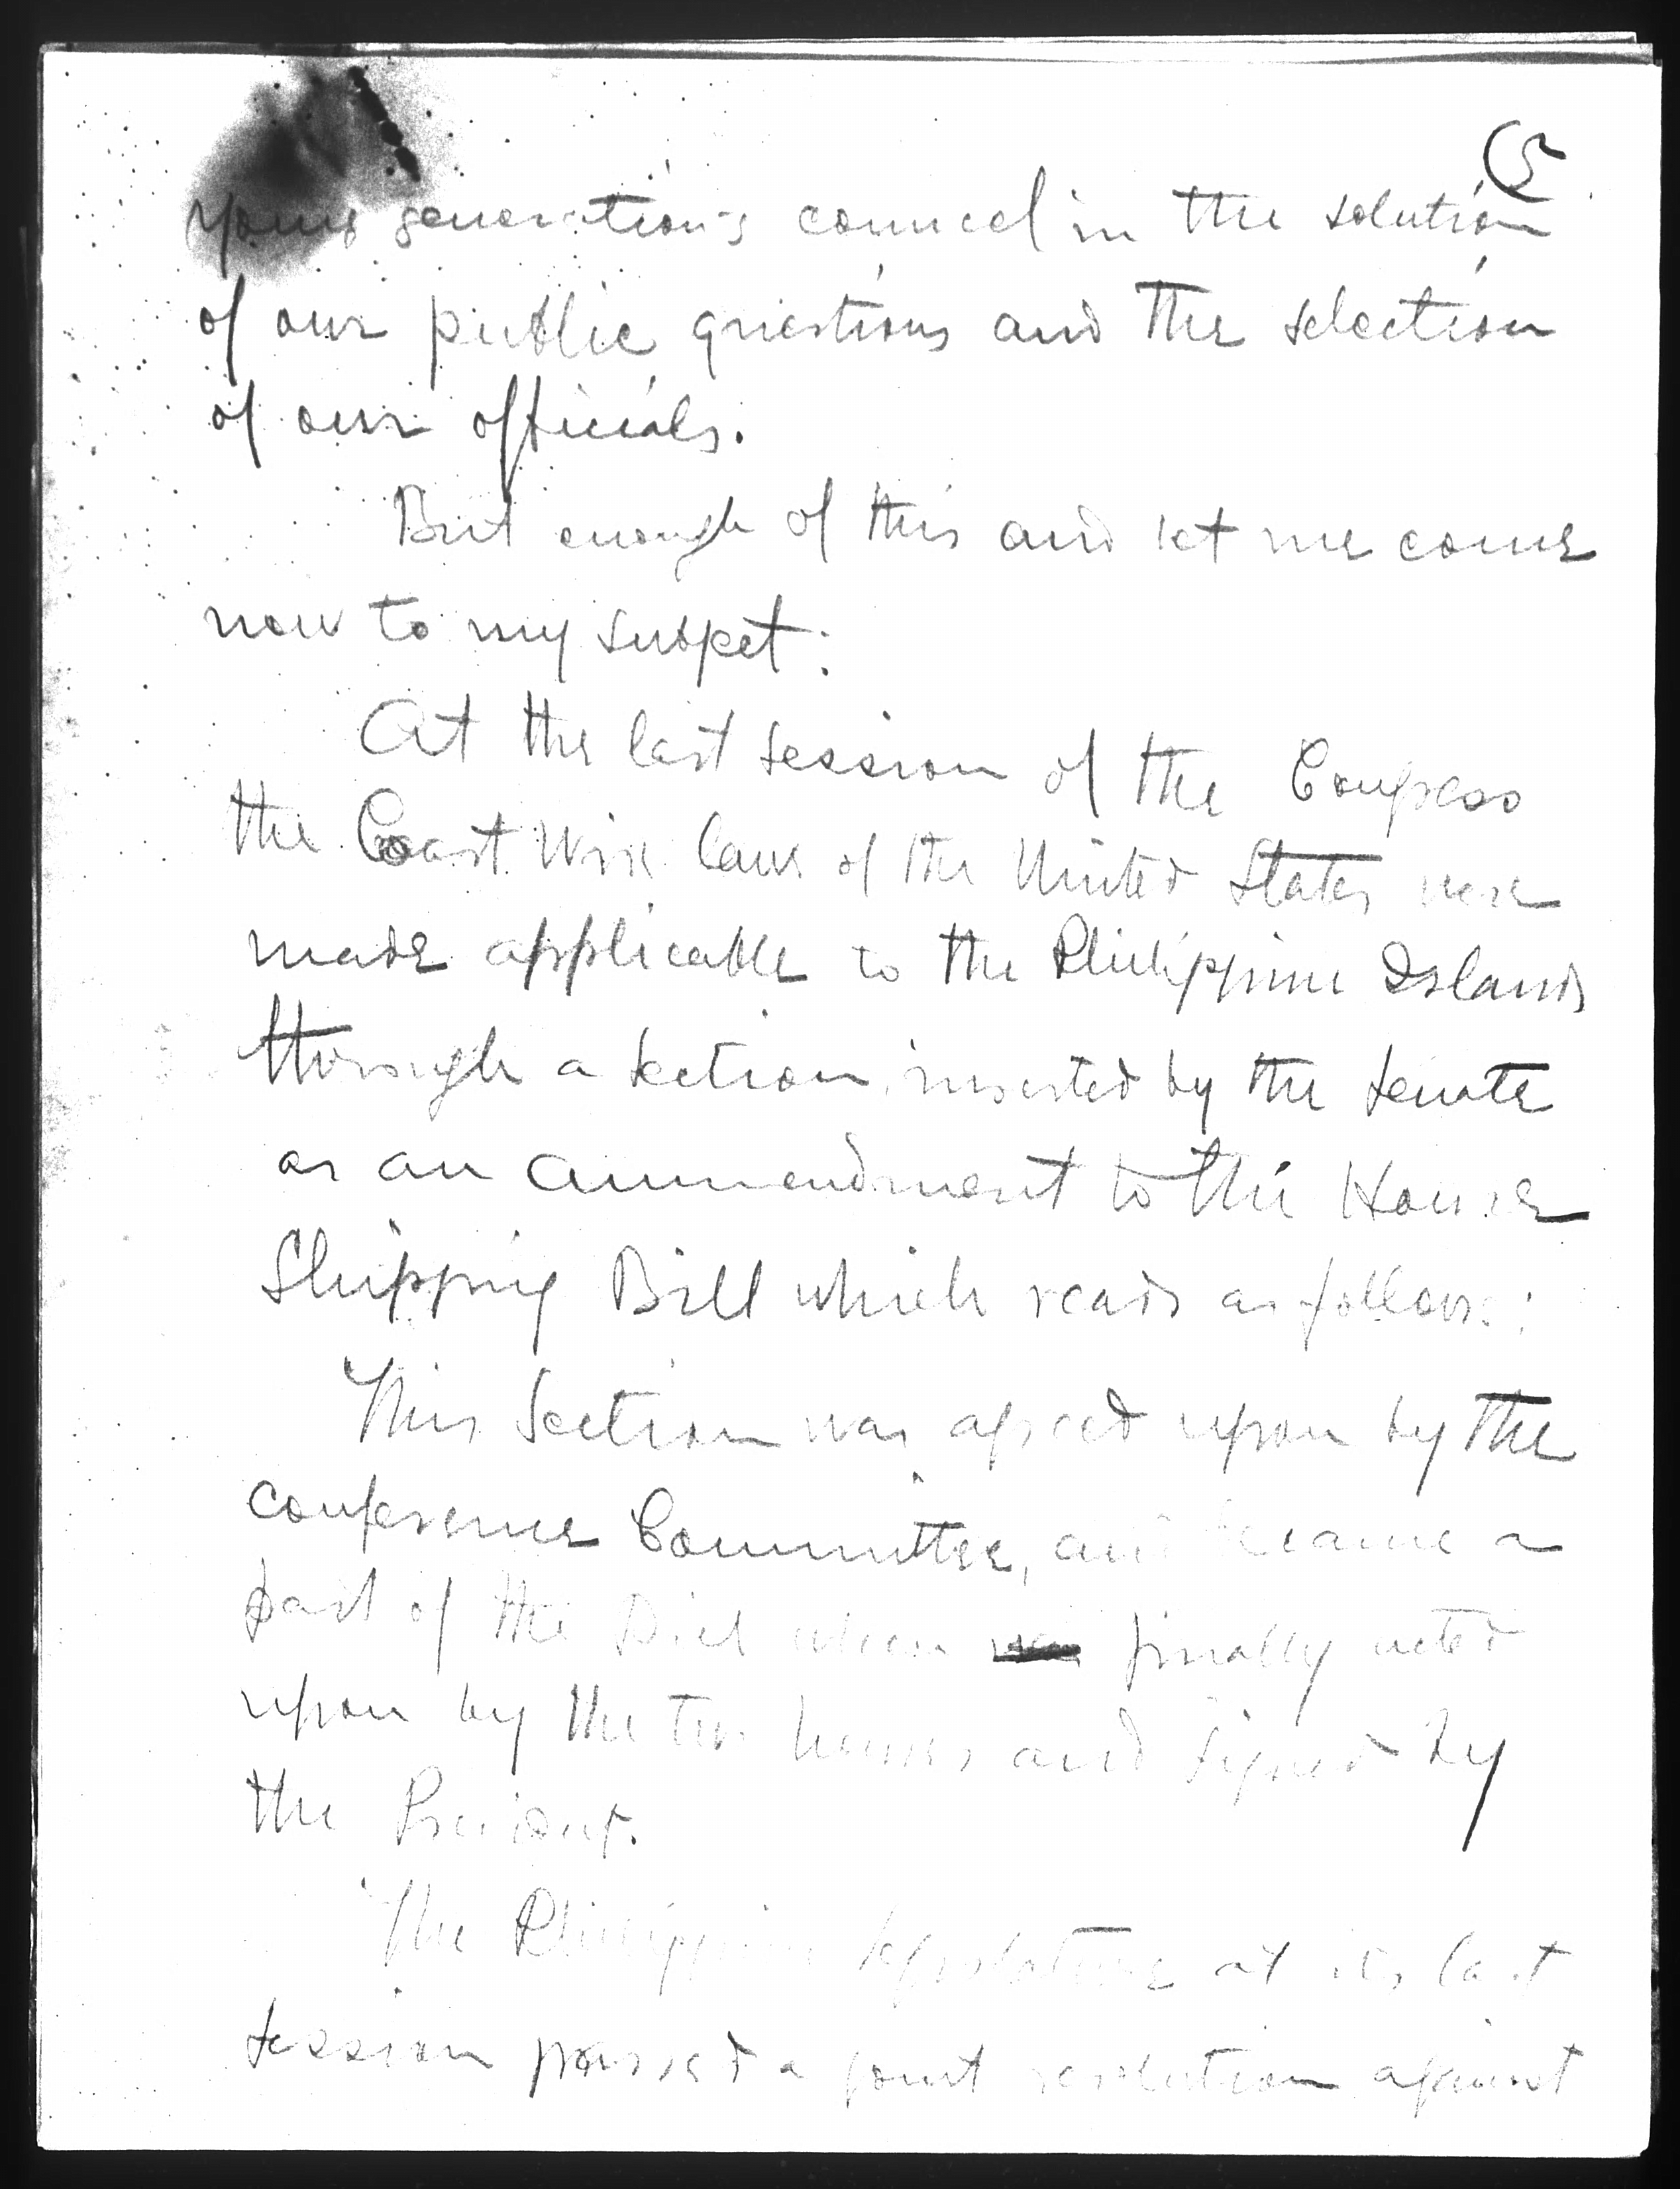 (5
young generation's councel in the solution
of our public questions and the selection
of our officials.
But enough of this and let me come
now to my subject:
At the last session of the Congress
the Coast Wise laws of the United States were
made applicable to the Philippine Islands
through a section, inserted by the Senate
as an ammendment to the House
Shipping Bill which reads as follows:
This Section was agreed upon by the
conference Committee, and became a
part of the Bill when was finally voted
upon by the two houses and signed by
the President.
The Philippine Legislature at its last
session passed a joint resolution against